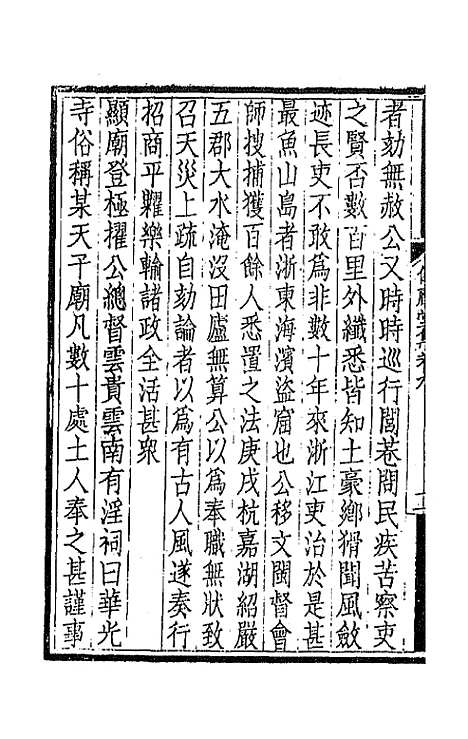 者劾無赦公又時時巡行閭巷問民疾苦察吏
之賢否數百里外纖悉皆知土豪鄉猾聞風斂
迹長吏不敢為非數十年來浙江吏治於是甚
最魚山島者浙東海濱盜窟也公移文閩督會
師搜捕獲百餘人悉置之法庚戌杭嘉湖紹嚴
五郡大水淹沒田廬無算公以為奉職無狀致
召天災上疏自劾論者以為有古人風遂奏行
招商平糶樂輸諸政全活甚衆
顯廟登極擢公總督雲貴雲南有淫祠曰華光
寺俗稱某天子廟凡數十處土人奉之甚謹事